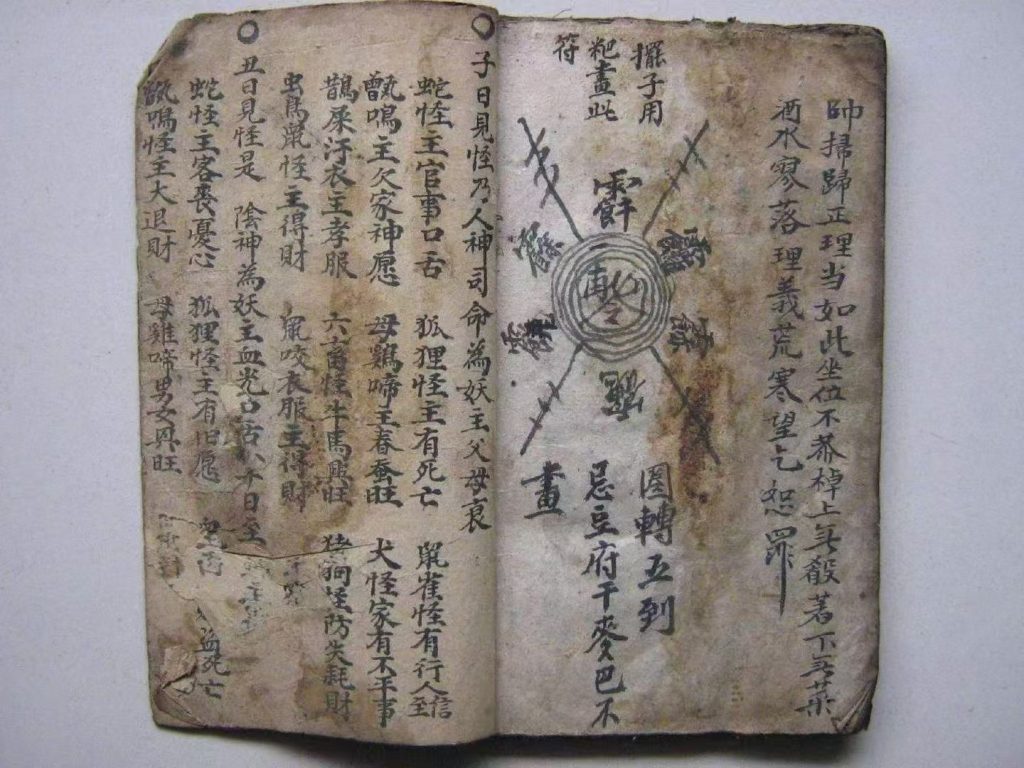 帥掃歸正理当如此坐位不齐棹上無殽著下無菜
酒水寥落理義荒寒望乞恕罪
擺子用
粑畫此
符
圏轉五到
忌豆府干麥巴不
畫
子日見怪乃人神司命為妖主父母哀
蛇怪主官事口舌 狐狸怪主有死亡 鼠雀怪有行人信至
甑鳴主欠家神愿 母鷄啼主春蚕旺 犬怪家有不平事
鵲屎汙衣主孝服 六畜怪牛馬興旺 猪狗怪防失耗財
虫鳥鼠怪主得財 鼠咬衣服主得財
丑日見怪是 陰神為妖主血光口舌 日至
蛇怪主客喪憂心 狐狸怪主有旧愿 血死亡
甑鳴怪主大退財 母雞啼男女興旺